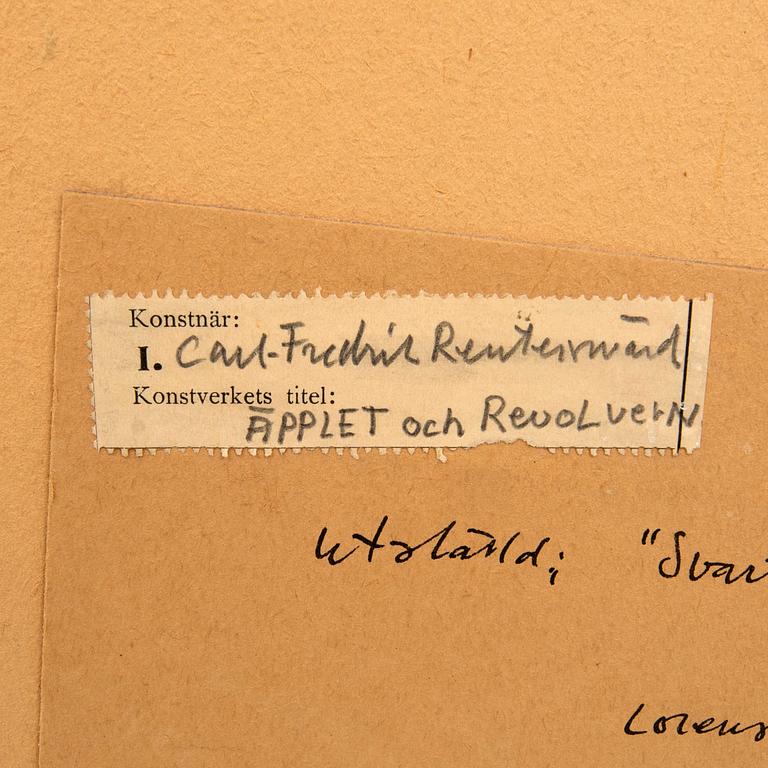 Konstnär:
I. Carl-Fredrik Reuterswärd
Konstverkets titel:
ÄPPLET och RevoLverN
Utställd; "Svar
Lorens